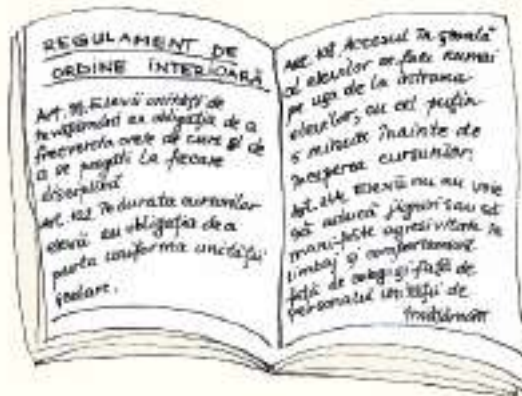 REGULAMENT DE
ORDINE INTERIOARĂ
Art. Elevii unității de
învățământ au obligația de a
frecventa orele de curs și de
a se pregăti la fiecare
disciplină
Art. 102. Pe durata cursurilor
elevii au obligația de a
purta uniforma unității
școlare.
Art. Accesul în școală
al elevilor se face numai
pe ușa de la intrarea
elevilor, cu cel puțin
5 minute înainte de
începerea cursurilor.
Art. Elevii nu au voie
să aducă jigniri sau să
manifeste agresivitate în
limbaj și comportament
față de colegi și față de
personalul unității de
învățământ